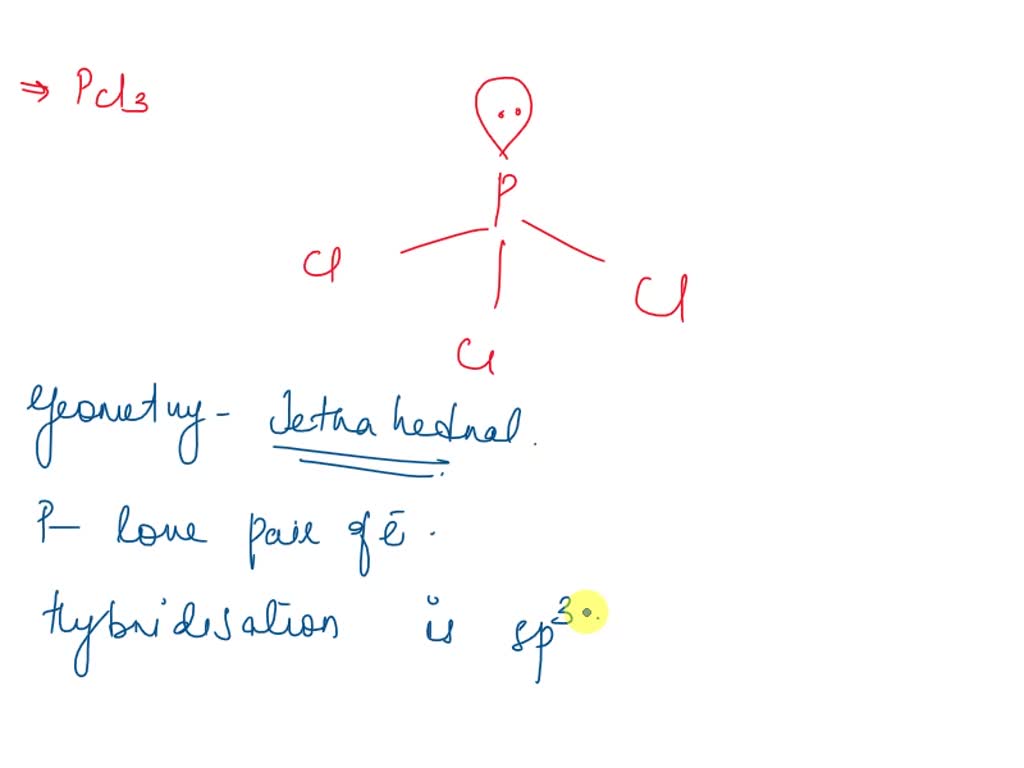 ⇒ PCl3
P
Cl
Cl
Cl
Geometry - Tetrahedral.
P- lone pair of ē.
Hybridisation is sp³.